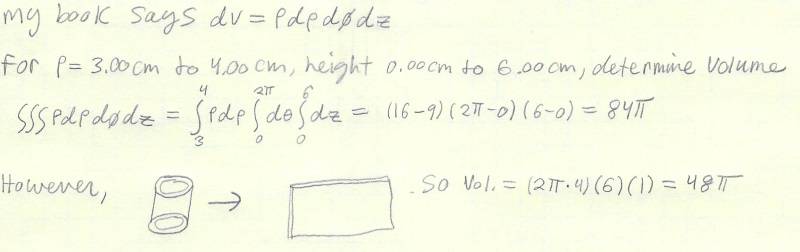 my book says dv = ρdρdødz
For ρ = 3.00cm to 4.00cm, height 0.00cm to 6.00cm, determine Volume
∫∫∫ρdρdødz = ∫₃⁴ρdρ∫₀²ᵖⁱdθ∫₀⁶dz = (16-9)(2π-0)(6-0) = 84π
However, → . So Vol. = (2π·4)(6)(1) = 48π